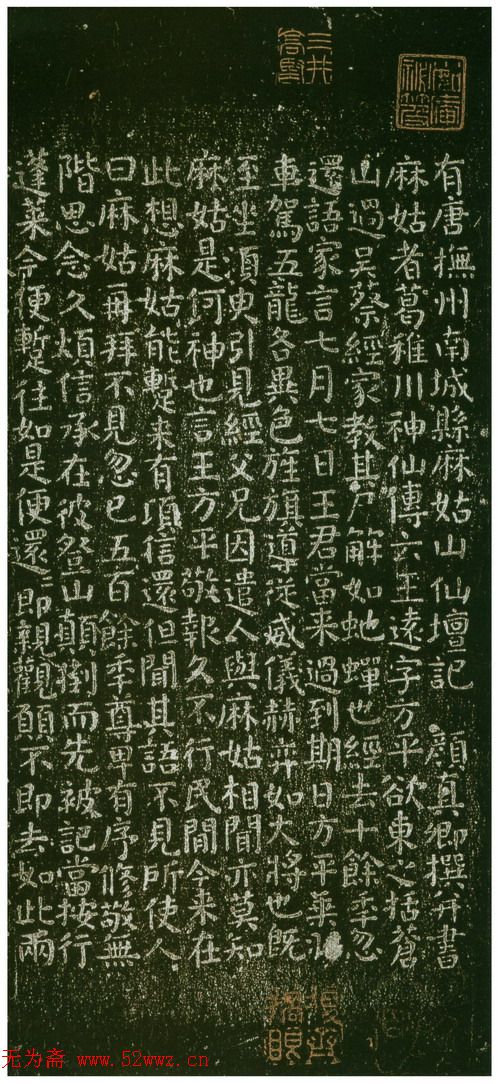 三井高堅
有唐撫州南城縣麻姑山仙壇記　顏真卿撰并書
麻姑者葛稚川神仙傳云王遠字方平欲東之括蒼
山過吳蔡經家教其尸解如虵蟬也經去十餘秊忽
還語家言七月七日王君當来過到期日方平乘
車駕五龍各異色旌旗導從威儀赫弈如大將也既
至坐須臾引見經父兄因遣人與麻姑相聞亦莫知
麻姑是何神也言王方平敬報久不行民間今来在
此想麻姑能蹔来有頃信還但聞其語不見所使人
曰麻姑再拜不見忽已五百餘秊尊卑有序修敬無
階思念久煩信承在彼登山顛倒而先被記當按行
蓬萊今便蹔往如是便還〻即親觀願不即去如此兩
无为斋 www.52wwz.cn